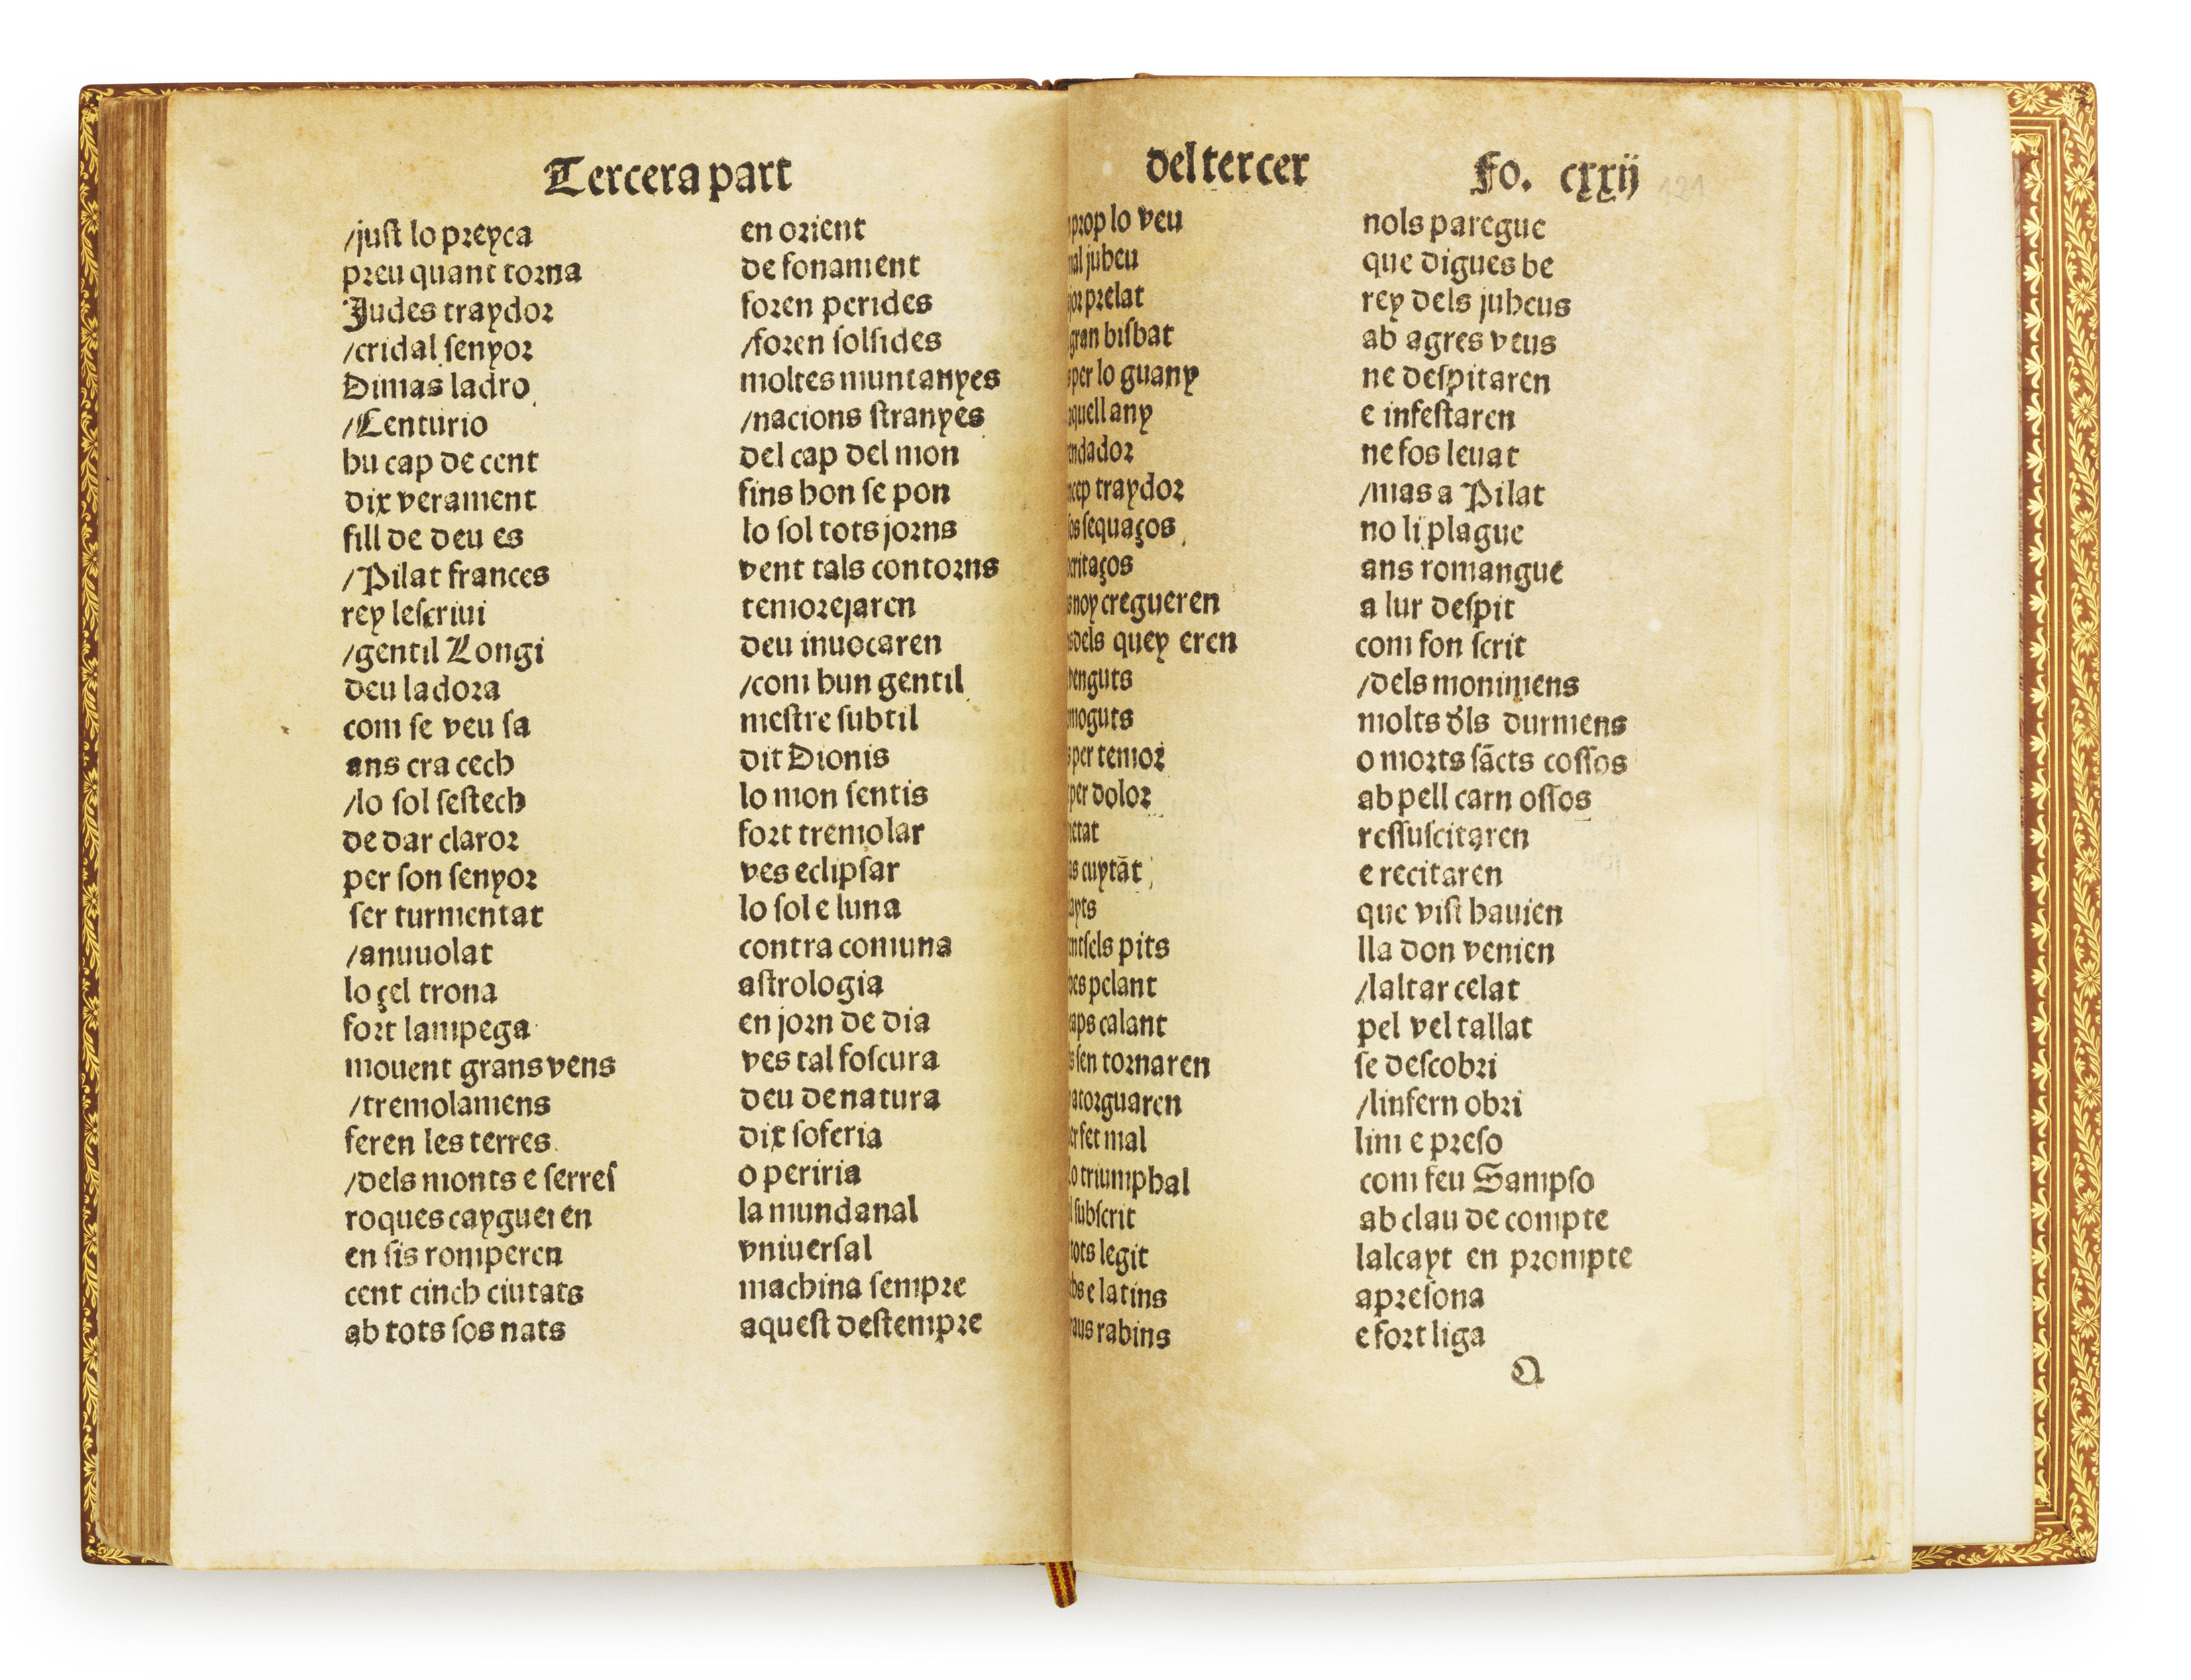 Tercera part
/just lo preyca
preu quant torna
Judes traydor
/cridal senyor
Dimas ladro
/Centurio
hu cap de cent
dix verament
fill de deu es
/Pilat frances
rey lescriui
/gentil Longi
deu ladora
com se veu sa
ans era cech
/lo sol sestech
de dar claror
per son senyor
ser turmentat
/anuuolat
lo çel trona
fort lampega
mouent grans vens
/tremolamens
feren les terres
/dels monts e serres
roques caygueren
en sis romperen
cent cinch ciutats
ab tots sos nats
en orient
de fonament
foren perides
/foren solsides
moltes muntanyes
/nacions stranyes
del cap del mon
fins hon se pon
lo sol tots jorns
vent tals contorns
temorejaren
deu inuocaren
/com hun gentil
mestre subtil
dit Dionis
lo mon sentis
fort tremolar
ves eclipsar
lo sol e luna
contra comuna
astrologia
en jorn de dia
ves tal foscura
deu de natura
dix soferia
o periria
la mundanal
vniuersal
machina sempre
aquest destempre
del tercer
Fo. cxxij
121
prop lo veu
jubeu
prelat
gran bisbat
per lo guany
aquell any
traydor
sequaços
noy cregueren
dels quey eren
venguts
moguts
per temor
per dolor
cuytāt
pits
pelant
calant
sen tornaren
atorguaren
fet mal
triumphal
subscrit
tots legit
e latins
rabins
nols paregue
que digues be
rey dels jubeus
ab agres veus
ne despitaren
e infestaren
ne fos leuat
/mas a Pilat
no li plague
ans romangue
a lur despit
com fon scrit
/dels moniments
molts d̄ls durmens
o morts sācts cossos
ab pell carn ossos
ressuscitaren
e recitaren
que vist hauien
lla don venien
/laltar celat
pel vel tallat
se descobri
/linfern obri
lim e preso
com feu Sampso
ab clau de compte
lalcayt en prompte
apresona
e fort liga
Q